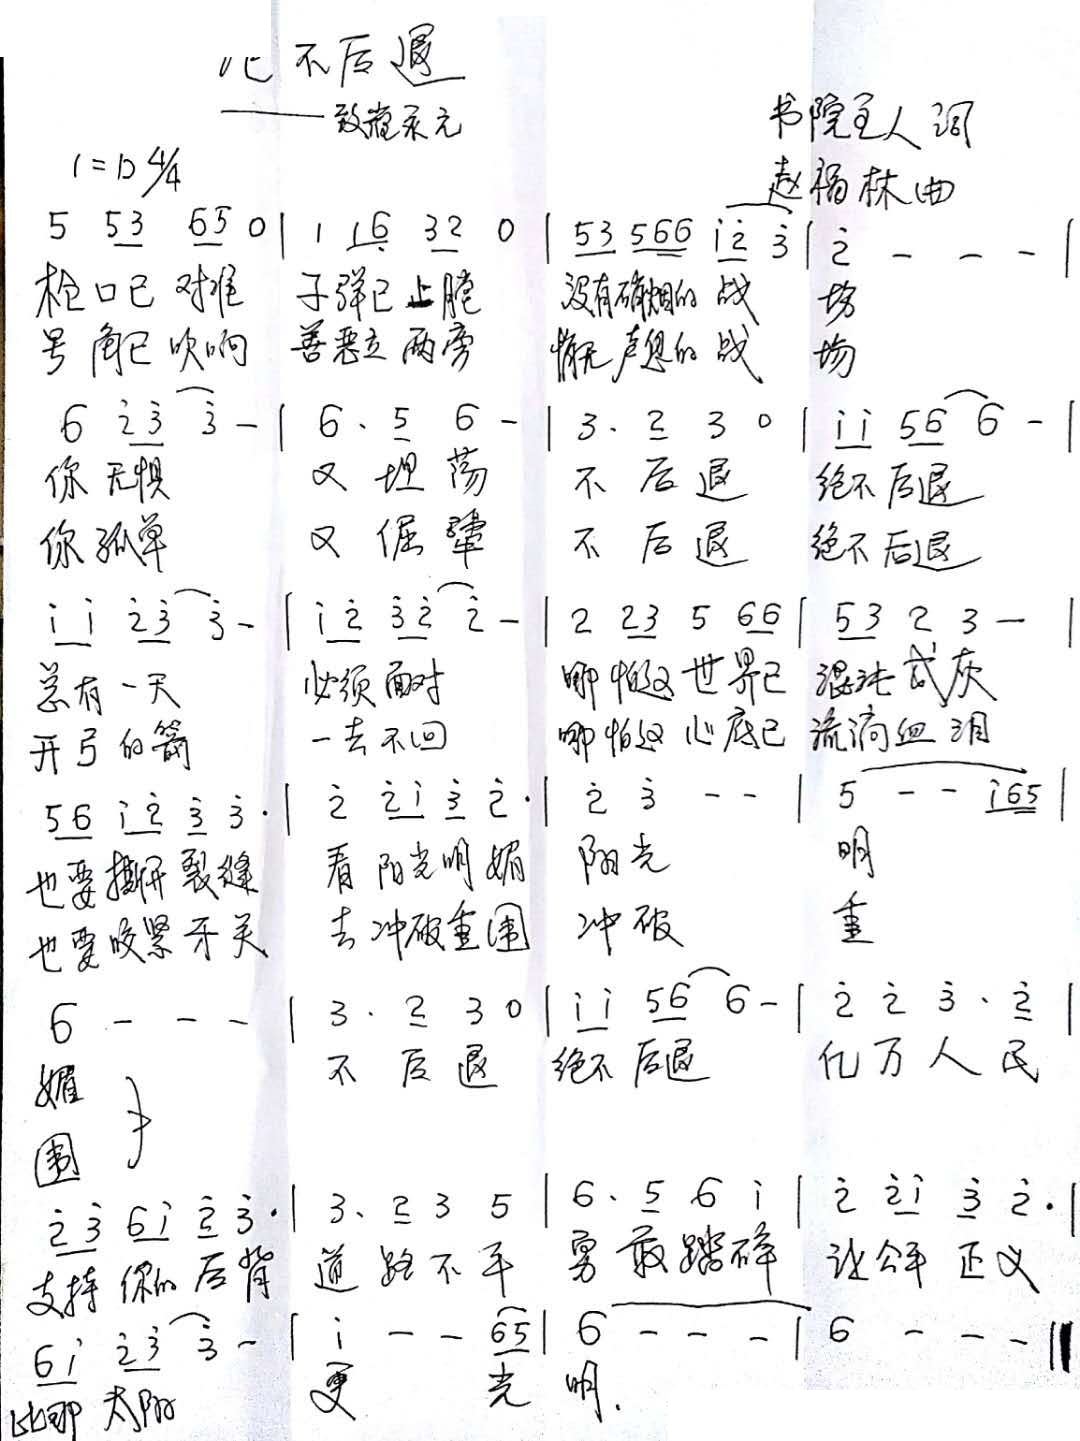 不后退
——致崔永元
书院主人词
1=D 4/4
赵福林曲
5 53 65 0 | 1 16 32 0 | 53 566 i̇2̇ 3̇ | 2̇ - - - |
枪口已 对准 子弹已上膛 没有硝烟的 战 场
号角已 吹响 善恶立两旁 悄无声息的 战 场
6 2̇3̇ 3̇ - | 6. 5 6 - | 3. 2 3 0 | i̇i̇ 56 6 - |
你 无惧 又 坦 荡 不 后 退 绝不后退
你 孤单 又 倔 犟 不 后 退 绝不后退
i̇i̇ 2̇3̇ 3̇ - | i̇2̇ 3̇2̇ 2̇ - | 2 23 5 66 | 53 2 3 - |
总有一天 必须面对 哪怕这 世界已 混沌成灰
开弓的箭 一去不回 哪怕这 心底已 流淌血泪
56 i̇2̇ 3̇ 3̇. | 2̇ 2̇i̇ 3̇ 2̇. | 2̇ 3̇ - - | 5 - - i̇65 |
也要撕开裂缝 看 阳光明媚 阳光 明
也要咬紧牙关 去 冲破重围 冲破 重
6 - - - | 3. 2 3 0 | i̇i̇ 56 6 - | 2̇ 2̇ 3̇. 2̇ |
媚 不 后 退 绝不 后退 亿万人民
围
2̇3̇ 6i̇ 2̇ 3̇. | 3. 2 3 5 | 6. 5 6 i̇ | 2̇ 2̇i̇ 3̇ 2̇. |
支持 你的 后背 道 路 不 平 勇 敢 踏碎 让公平 正义
6i̇ 2̇3̇ 3̇ - | i̇ - - 65 | 6 - - - | 6 - - - ‖
比那 太阳 更 光 明.